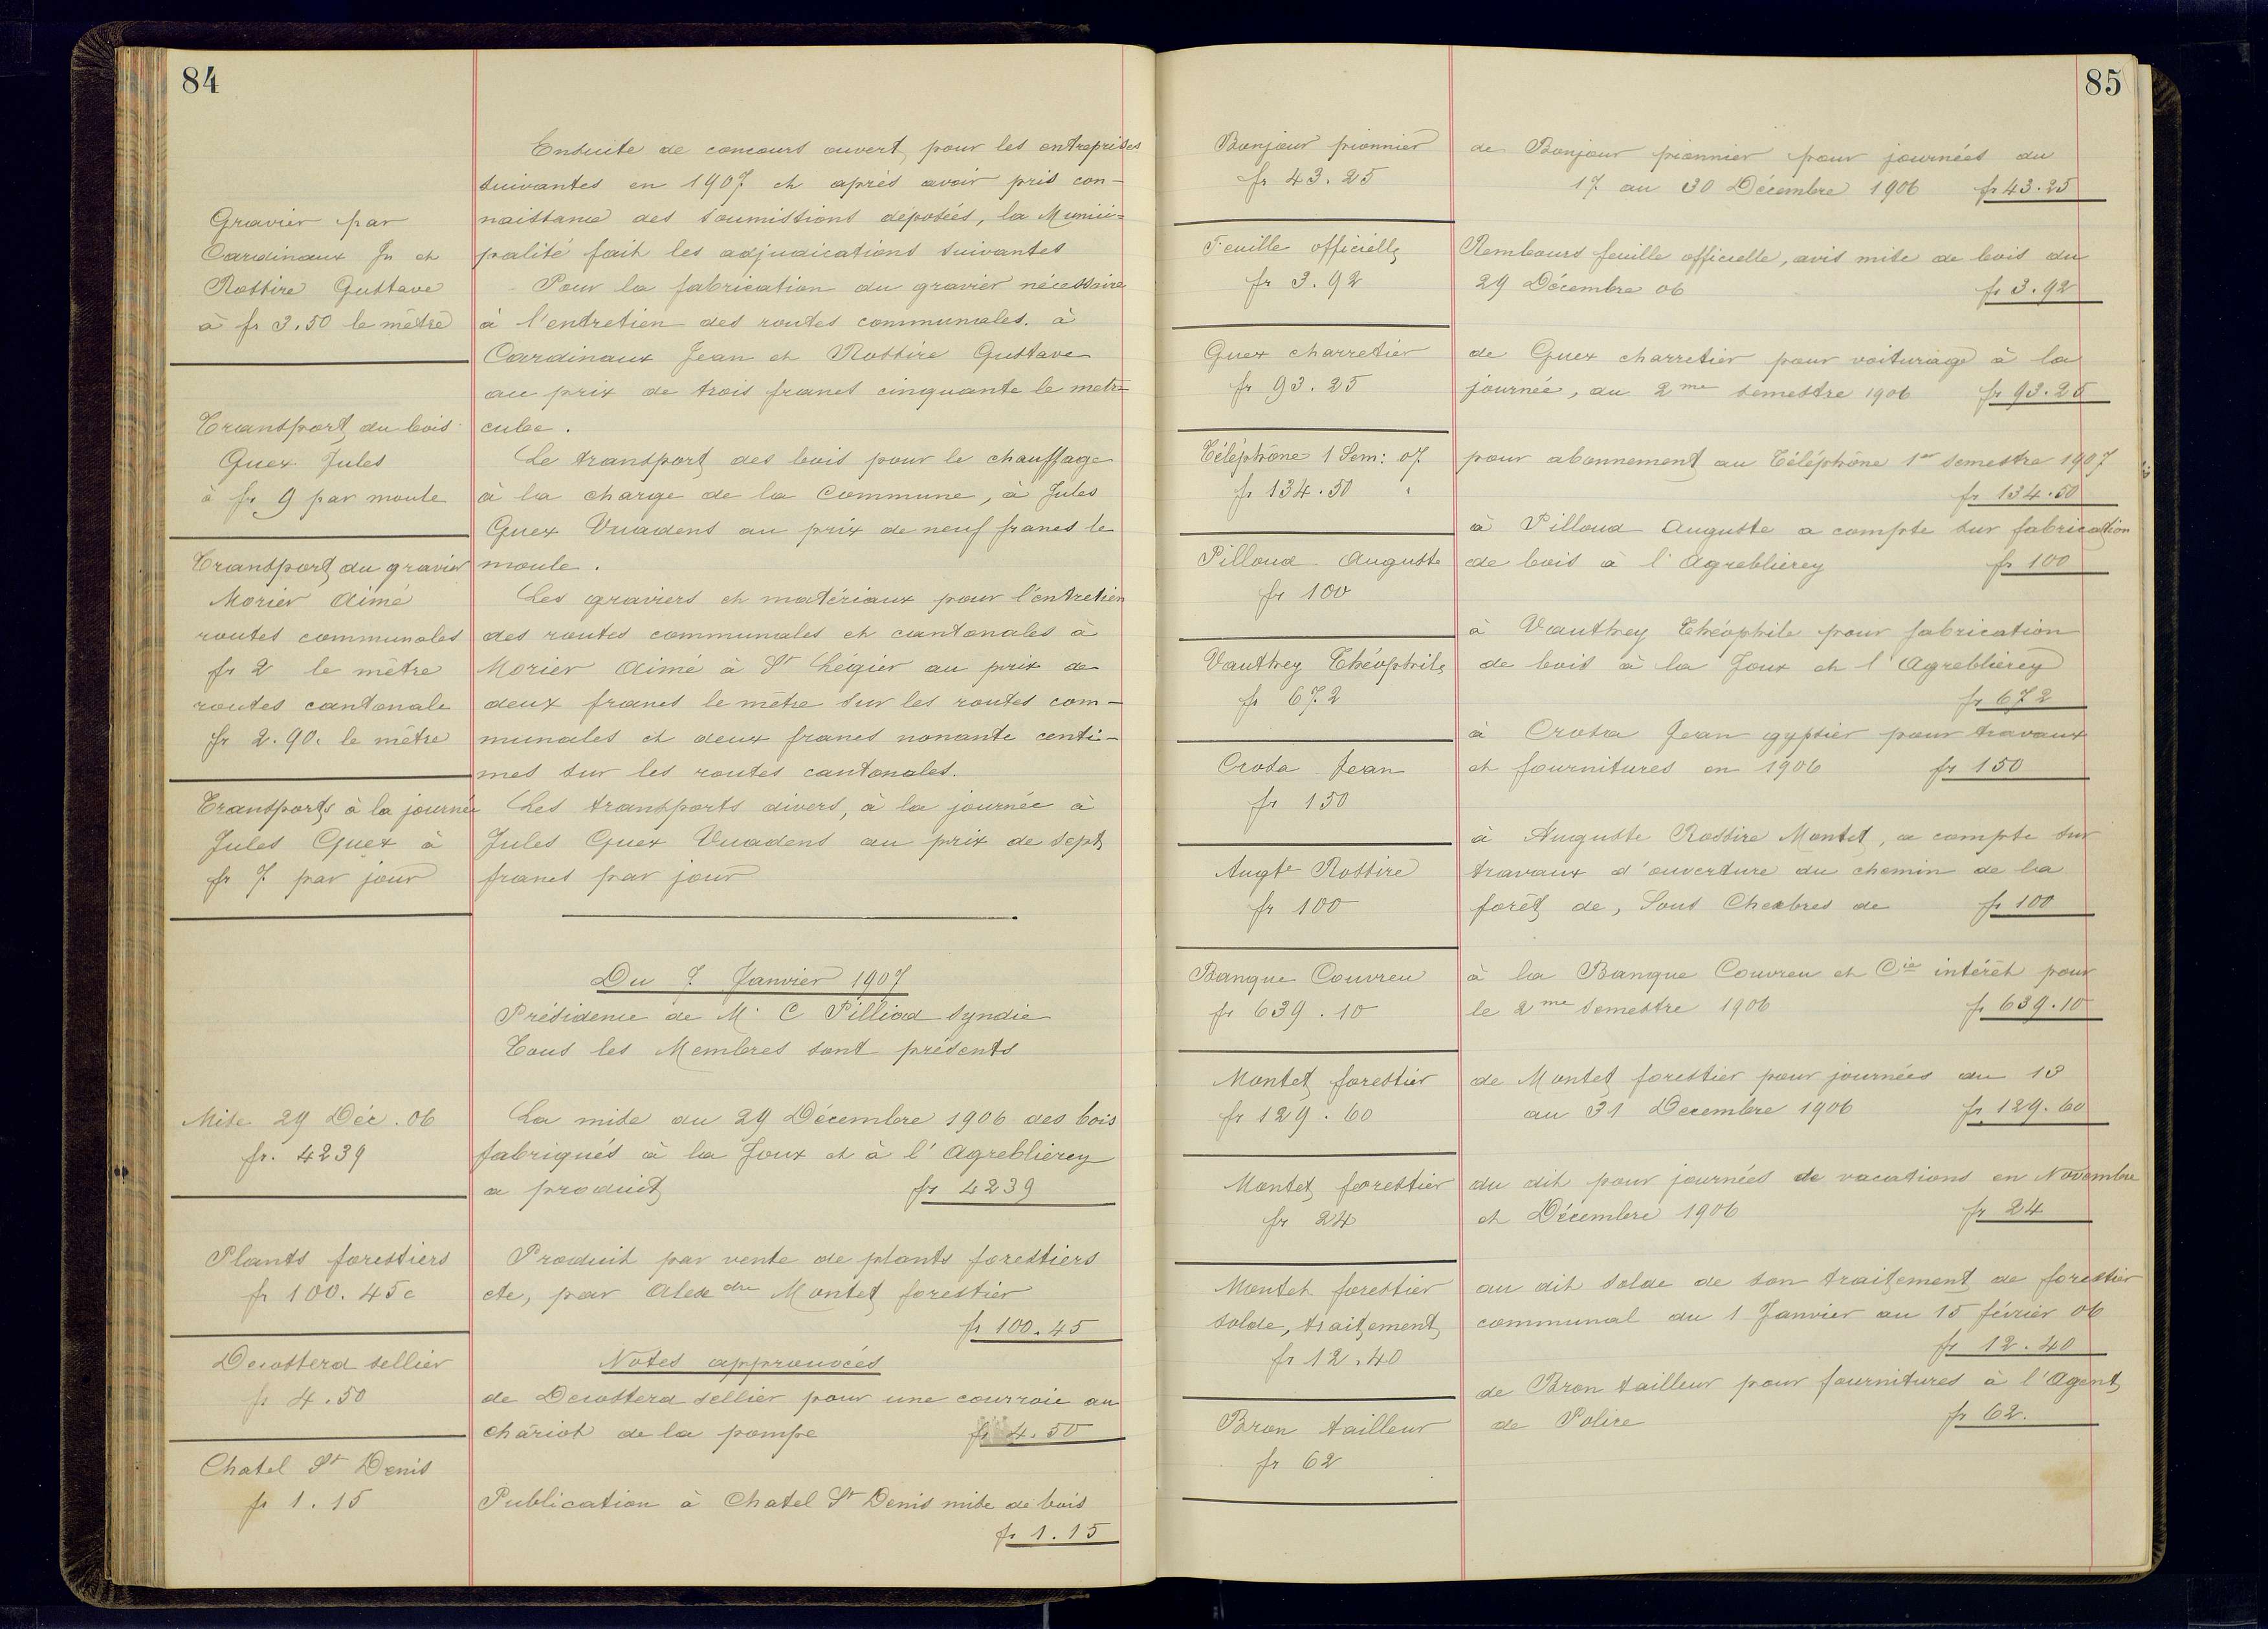 84
Ensuite de concours ouvert, pour les entreprises
suivantes en 1907 et après avoir pris con-
Gravier par
naissance des soumissions déposées, la Munici-
Cardinaux Jn et
palité fait les adjudications suivantes
Rossire Gustave
Pour la fabrication du gravier nécessaire
à fr 3.50 le mètre
à l'entretien des routes communales. à
Cardinaux Jean et Rossire Gustave
au prix de trois francs cinquante le mètre
Transport du bois
cube.
Guex Jules
Le transport des bois pour le chauffage
à fr 9 par moule
à la charge de la Commune, à Jules
Guex Vuadens au prix de neuf francs le
Transport du gravier
moule.
Morier Aimé
Les graviers et matériaux pour l'entretien
routes communales
des routes communales et cantonales à
fr 2 le mètre
Morier Aimé à St Légier au prix de
routes cantonale
deux francs le mètre sur les routes com-
fr 2.90. le mètre
munales et deux francs nonante centi-
mes sur les routes cantonales.
Transports à la journée
Les transports divers, à la journée à
Jules Guex à
Jules Guex Vuadens au prix de sept
fr 7 par jour
francs par jour
Du 7 Janvier 1907
Présidence de M. C Pilliod syndic
Tous les Membres sont présents
Mise 29 Déc. 06
La mise du 29 Décembre 1906 des bois
fr. 4239
fabriqués à la Joux et à l'Agreblierey
a produit fr 4239
Plants forestiers
Produit par vente de plants forestiers
fr 100.45 c
etc, par Alexdre Montet forestier
fr 100.45
Decosterd sellier
Notes approuvées
fr 4.50
de Decosterd sellier pour une courroie au
châriot de la pompe fr 4.50
Chatel St Denis
fr 1.15
Publication à Chatel St Denis mise de bois
fr 1.15
85
Bonjour pionnier
de Bonjour pionnier pour journées du
fr 43.25
17 au 30 Décembre 1906 fr 43.25
Feuille officielle
Rembours feuille officielle, avis mise de bois du
fr 3.92
29 Décembre 06 fr 3.92
Guex charretier
de Guex charretier pour voiturage à la
fr 93.25
journée, du 2me semestre 1906 fr 93.25
Téléphône 1 Sem: 07
pour abonnement au Téléphône 1er semestre 1907
fr 134.50
fr 134.50
à Pilloud Auguste a compte sur fabrication
Pilloud Auguste
de bois à l'Agreblierey fr 100
fr 100
à Vauthey Théophile pour fabrication
Vauthey Théophile
de bois à la Joux et l'Agreblierey
fr 672
fr 672
à Crosa Jean gypsier pour travaux
Crosa Jean
et fournitures en 1906 fr 150
fr 150
à Auguste Rossire Montet, a compte sur
Augte Rossire
travaux d'ouverture du chemin de la
fr 100
forêt de, Sous Chexbres de fr 100
Banque Couvreu
à la Banque Couvreu et Cie intérêt pour
fr 639.10
le 2me semestre 1906 fr 639.10
Montet forestier
de Montet forestier pour journées du 13
fr 129.60
au 31 Decembre 1906 fr 129.60
Montet forestier
du dit pour journées de vacations en Novembre
fr 24
et Décembre 1906 fr 24
Montet forestier
au dit solde de son traitement de forestier
solde, traitement
communal du 1 Janvier au 15 février 06
fr 12.40
fr 12.40
de Bron tailleur pour fournitures à l'Agent
Bron tailleur
de Police fr 62.
fr 62